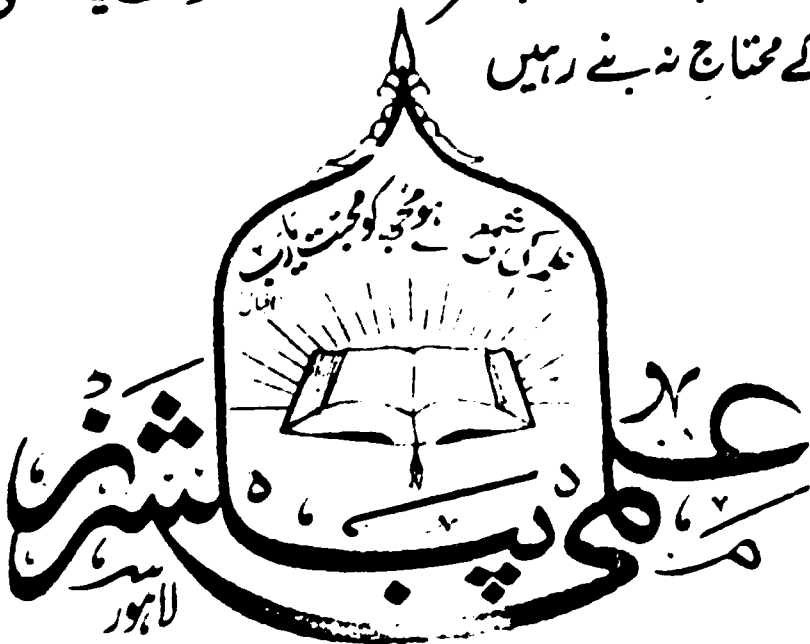 کے محتاج نہ بنے رہیں
علم کی شمع سے ہو مجھ کو محبت یارب
اقبال
علمی پبلشرز
لاہور